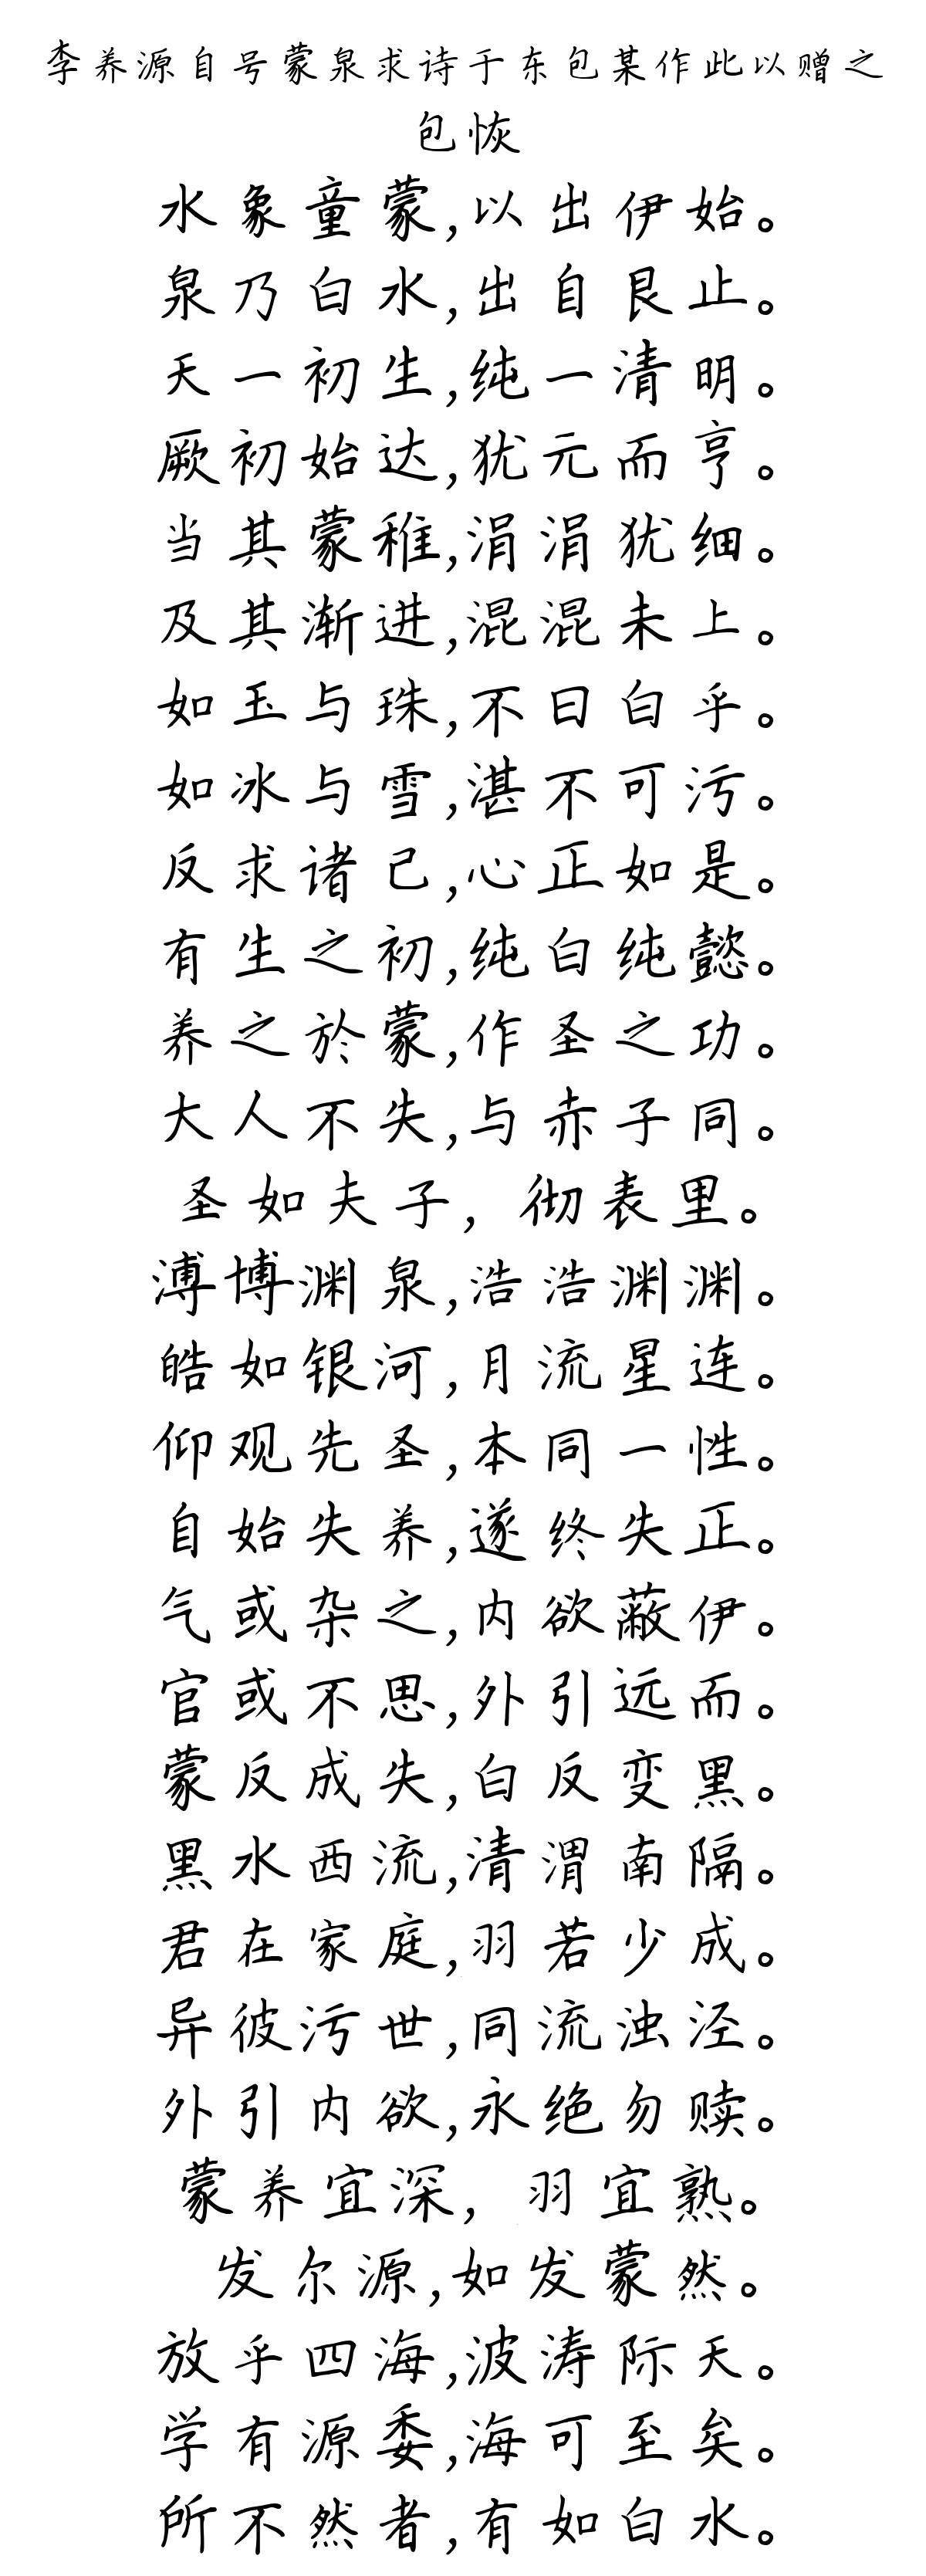 李养源自号蒙泉求诗于东包某作此以赠之
包恢
水象童蒙,以出伊始。
泉乃白水,出自艮止。
天一初生,纯一清明。
厥初始达,犹元而亨。
当其蒙稚,涓涓犹细。
及其渐进,混混未上。
如玉与珠,不曰白乎。
如冰与雪,湛不可污。
反求诸己,心正如是。
有生之初,纯白纯懿。
养之於蒙,作圣之功。
大人不失,与赤子同。
圣如夫子,彻表里。
溥博渊泉,浩浩渊渊。
皓如银河,月流星连。
仰观先圣,本同一性。
自始失养,遂终失正。
气或杂之,内欲蔽伊。
官或不思,外引远而。
蒙反成失,白反变黑。
黑水西流,清渭南隔。
君在家庭,羽若少成。
异彼污世,同流浊泾。
外引内欲,永绝勿赎。
蒙养宜深,羽宜熟。
发尔源,如发蒙然。
放乎四海,波涛际天。
学有源委,海可至矣。
所不然者,有如白水。